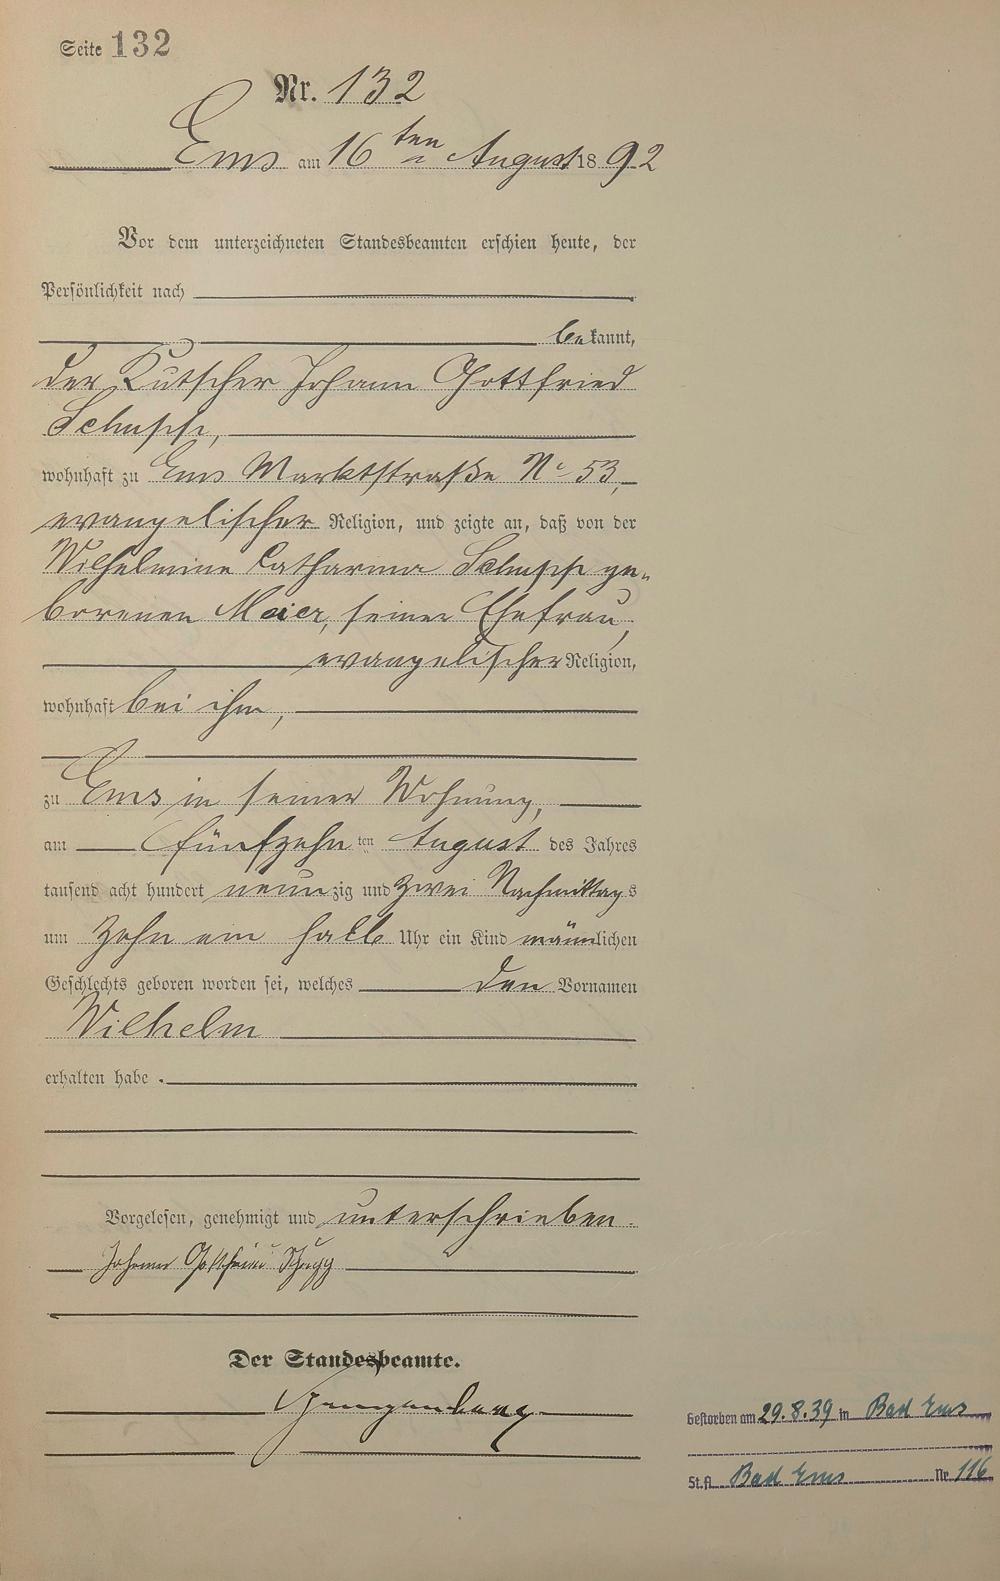 Seite 132
Nr. 132
Ems am 16ten August 1892
Vor dem unterzeichneten Standesbeamten erschien heute, der
Persönlichkeit nach
bekannt,
der Kutscher Johann Gottfried
Schupp,
wohnhaft zu Ems Marktstraße No 53,
evangelischer Religion, und zeigte an, daß von der
Wilhelmine Catharina Schupp ge-
borenen Meier, seiner Ehefrau,
evangelischer Religion,
wohnhaft bei ihm,
zu Ems in seiner Wohnung,
am fünfzehnten August des Jahres
tausend acht hundert neunzig und zwei Nachmittags
um zehn ein halb Uhr ein Kind männlichen
Geschlechts geboren worden sei, welches den Vornamen
Wilhelm
erhalten habe.
Vorgelesen, genehmigt und unterschrieben.
Johann Gottfried Schupp
Der Standesbeamte.
Gestorben am 29.8.39 in Bad Ems
St.A. Bad Ems Nr. 116